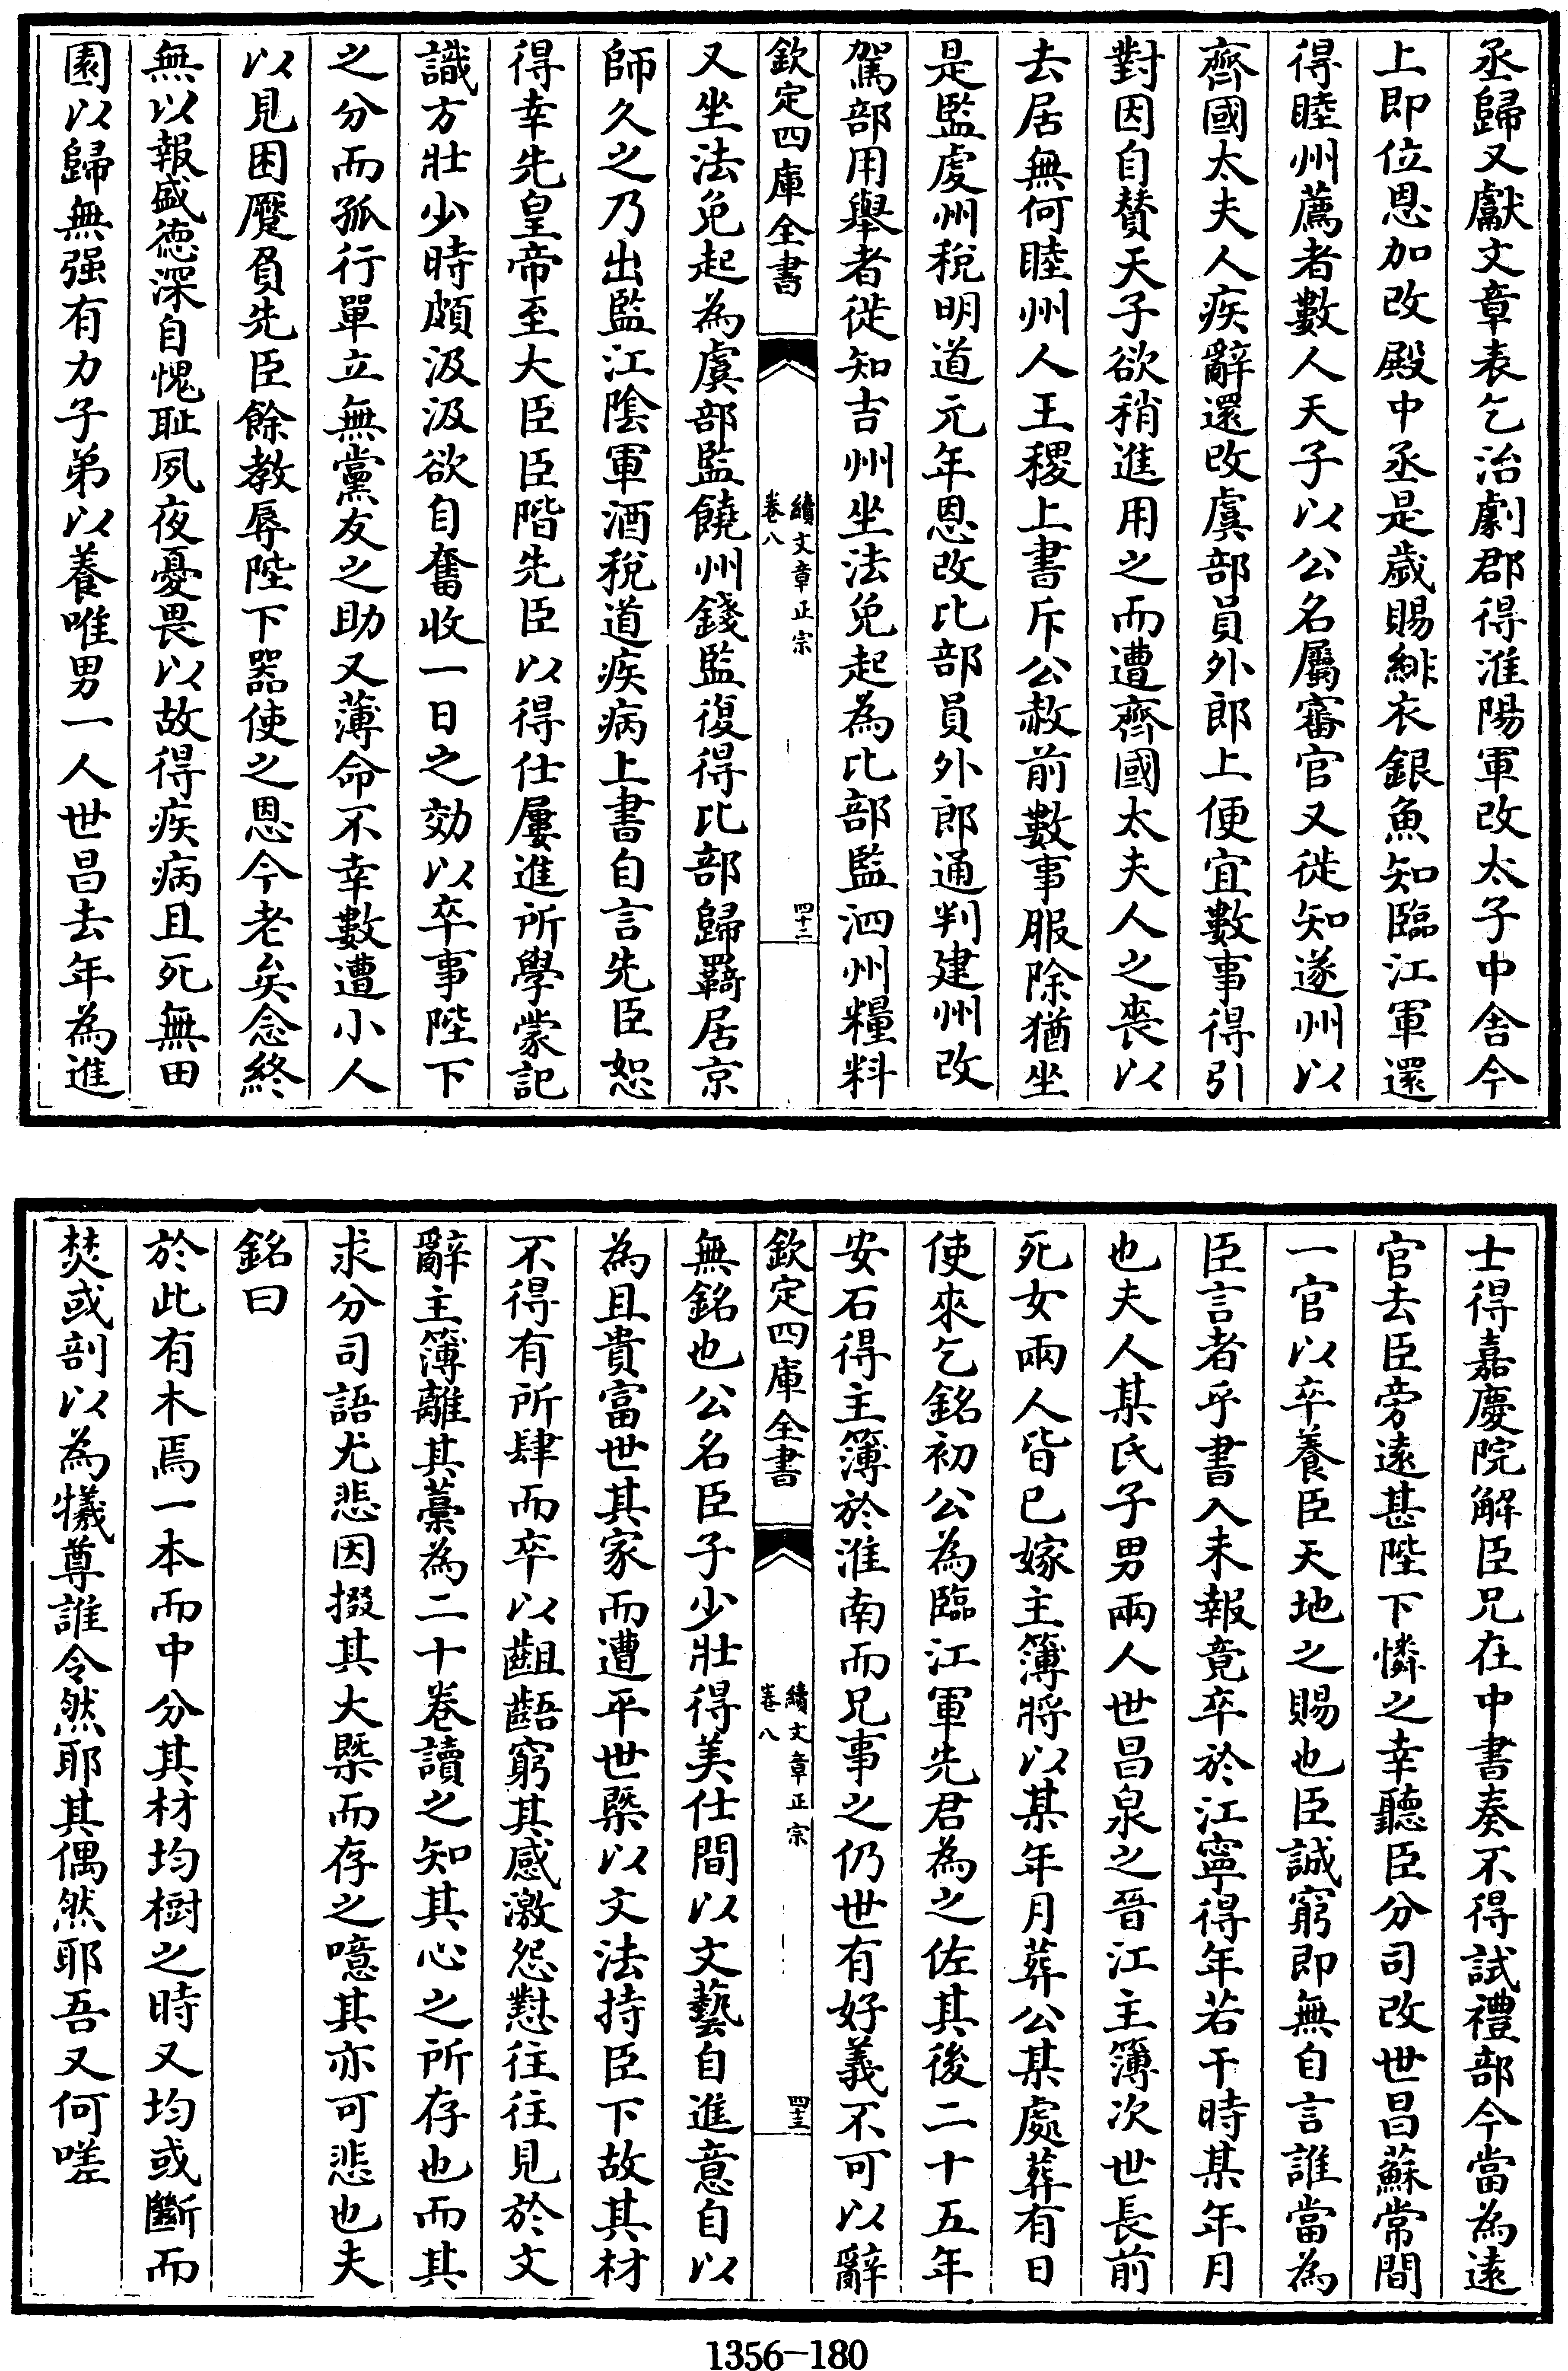 丞歸又獻文章表乞治劇郡得淮陽軍改太子中舍今
上即位恩加改殿中丞是歲賜緋衣銀魚知臨江軍還
得睦州薦者數人天子以公名屬審官又徙知遂州以
齊國太夫人疾辭還改虞部員外郎上便宜數事得引
對因自贊天子欲稍進用之而遭齊國太夫人之喪以
去居無何睦州人王稷上書斥公赦前數事服除猶坐
是監處州稅明道元年恩改比部員外郎通判建州改
駕部用舉者徙知吉州坐法免起為比部監泗州糧料
欽定四庫全書
續文章正宗
卷八
四十二
又坐法免起為虞部監饒州錢監復得比部歸羇居京
師久之乃出監江陰軍酒稅道疾病上書自言先臣恕
得幸先皇帝至大臣臣階先臣以得仕屢進所學蒙記
識方壯少時頗汲汲欲自奮收一日之効以卒事陛下
之分而孤行單立無黨友之助又薄命不幸數遭小人
以見困蹙負先臣餘教辱陛下器使之恩今老矣念終
無以報盛德深自愧恥夙夜憂畏以故得疾病且死無田
園以歸無强有力子弟以養唯男一人世昌去年為進
士得嘉慶院解臣兄在中書奏不得試禮部今當為遠
官去臣旁遠甚陛下憐之幸聽臣分司改世昌蘇常間
一官以卒養臣天地之賜也臣誠窮即無自言誰當為
臣言者乎書入未報竟卒於江寧得年若干時某年月
也夫人某氏子男兩人世昌泉之晉江主簿次世長前
死女兩人皆已嫁主簿將以某年月葬公某處葬有日
使來乞銘初公為臨江軍先君為之佐其後二十五年
安石得主簿於淮南而兄事之仍世有好義不可以辭
欽定四庫全書
續文章正宗
卷八
四十三
無銘也公名臣子少壯得美仕間以文藝自進意自以
為且貴富世其家而遭平世槩以文法持臣下故其材
不得有所肆而卒以齟齬窮其感激怨懟往往見於文
辭主簿離其藁為二十卷讀之知其心之所存也而其
求分司語尤悲因掇其大槩而存之噫其亦可悲也夫
銘曰
於此有木焉一本而中分其材均樹之時又均或斷而
焚或剖以為犧尊誰令然耶其偶然耶吾又何嗟
1356-180